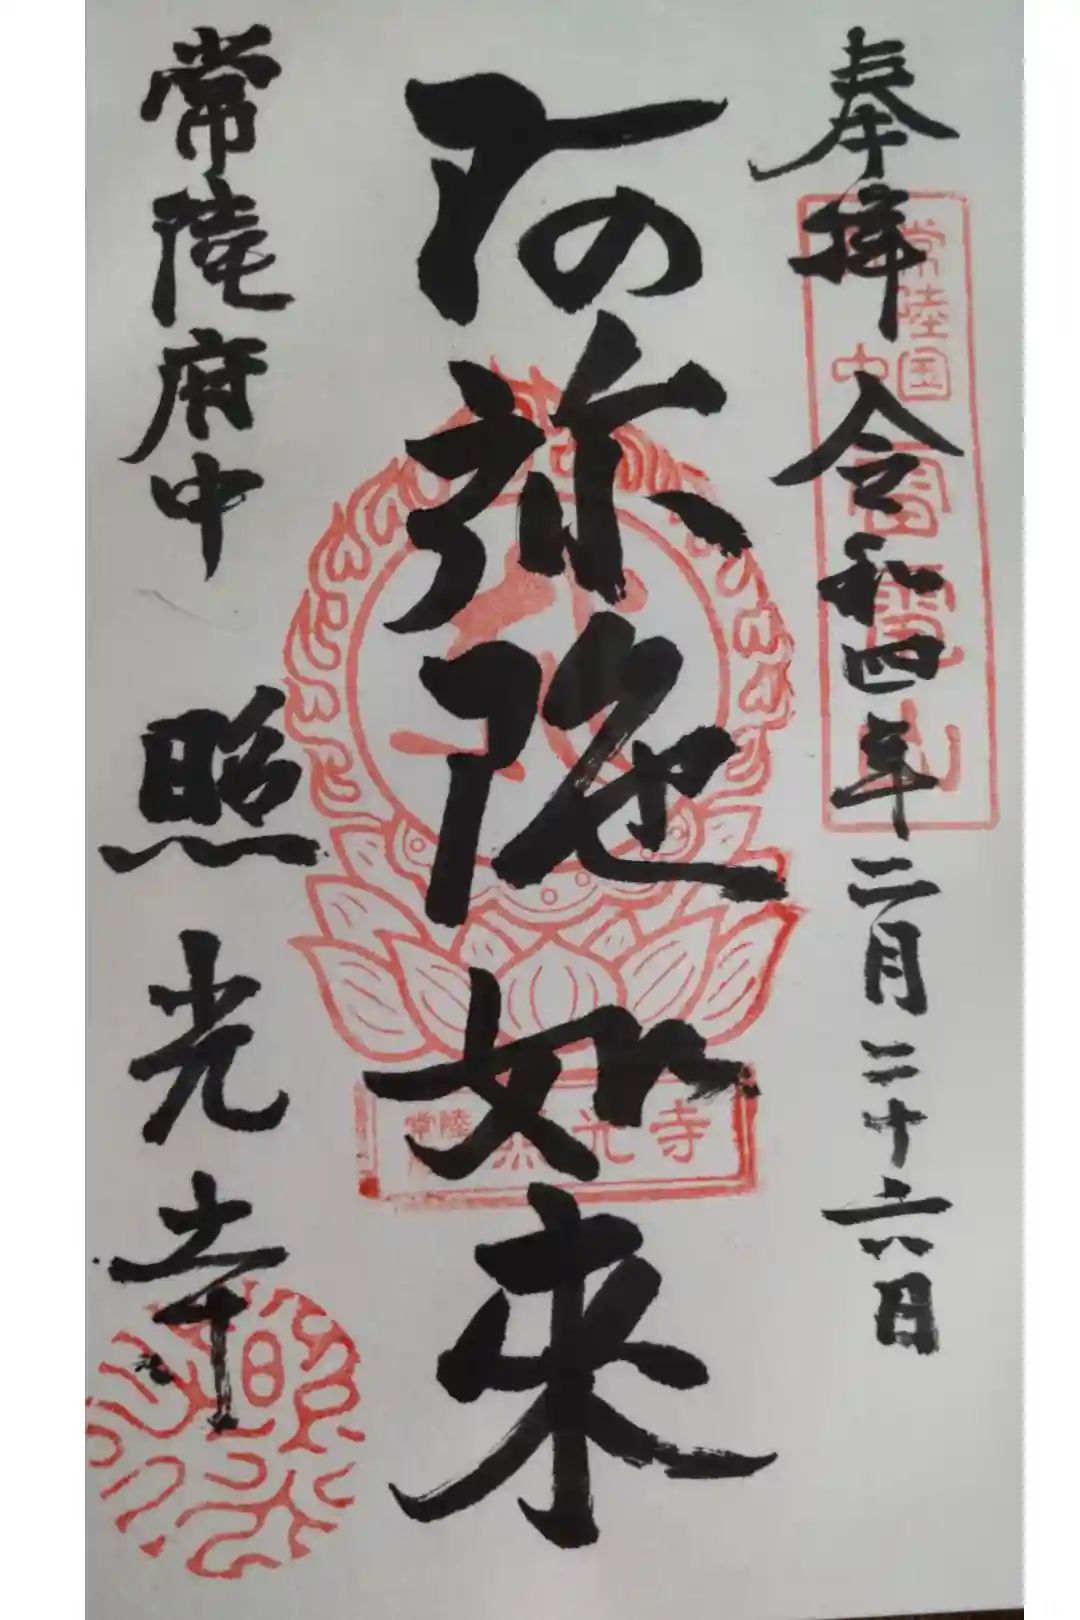 奉拝 令和四年二月二十六日
常陸国
中
阿弥陀如来
常陸
光寺
常陸府中 照光寺